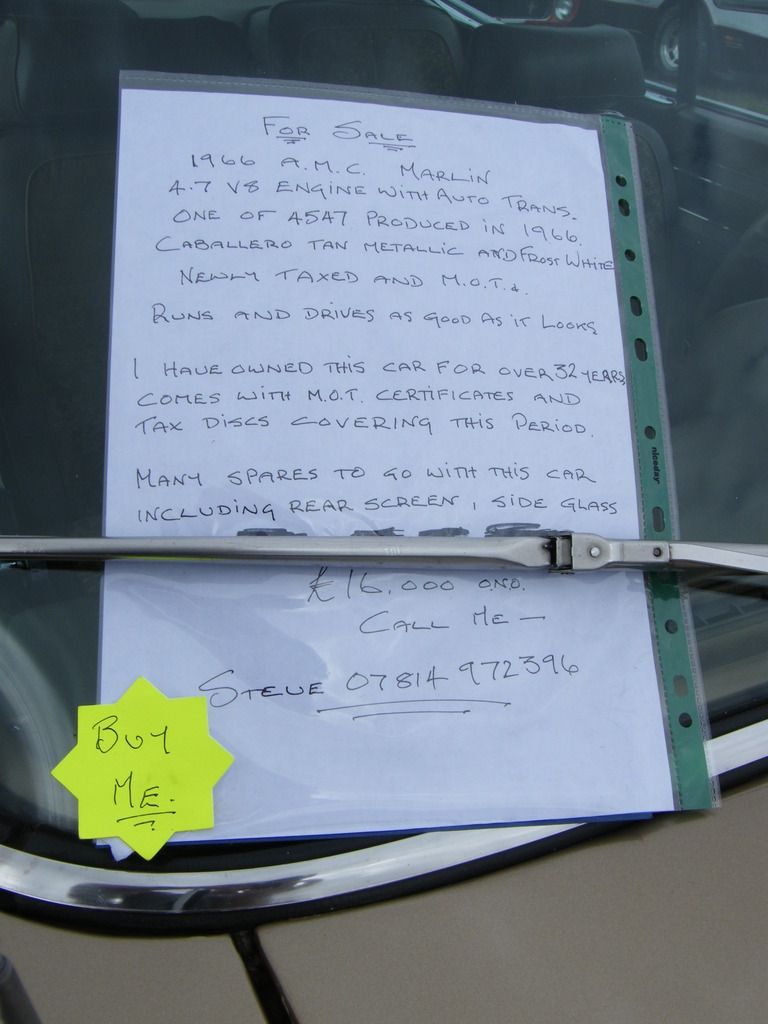 FOR SALE
1966 A.M.C. MARLIN
4.7 V8 ENGINE WITH AUTO TRANS.
ONE OF 4547 PRODUCED IN 1966.
CABALLERO TAN METALLIC AND FROST WHITE
NEWLY TAXED AND M.O.T.d.
RUNS AND DRIVES AS GOOD AS IT LOOKS
I HAVE OWNED THIS CAR FOR OVER 32 YEARS
COMES WITH M.O.T. CERTIFICATES AND
TAX DISCS COVERING THIS PERIOD.
MANY SPARES TO GO WITH THIS CAR
INCLUDING REAR SCREEN, SIDE GLASS
£16.000 ONO.
CALL ME —
STEVE 07814 972396
BUY
ME.
niceday